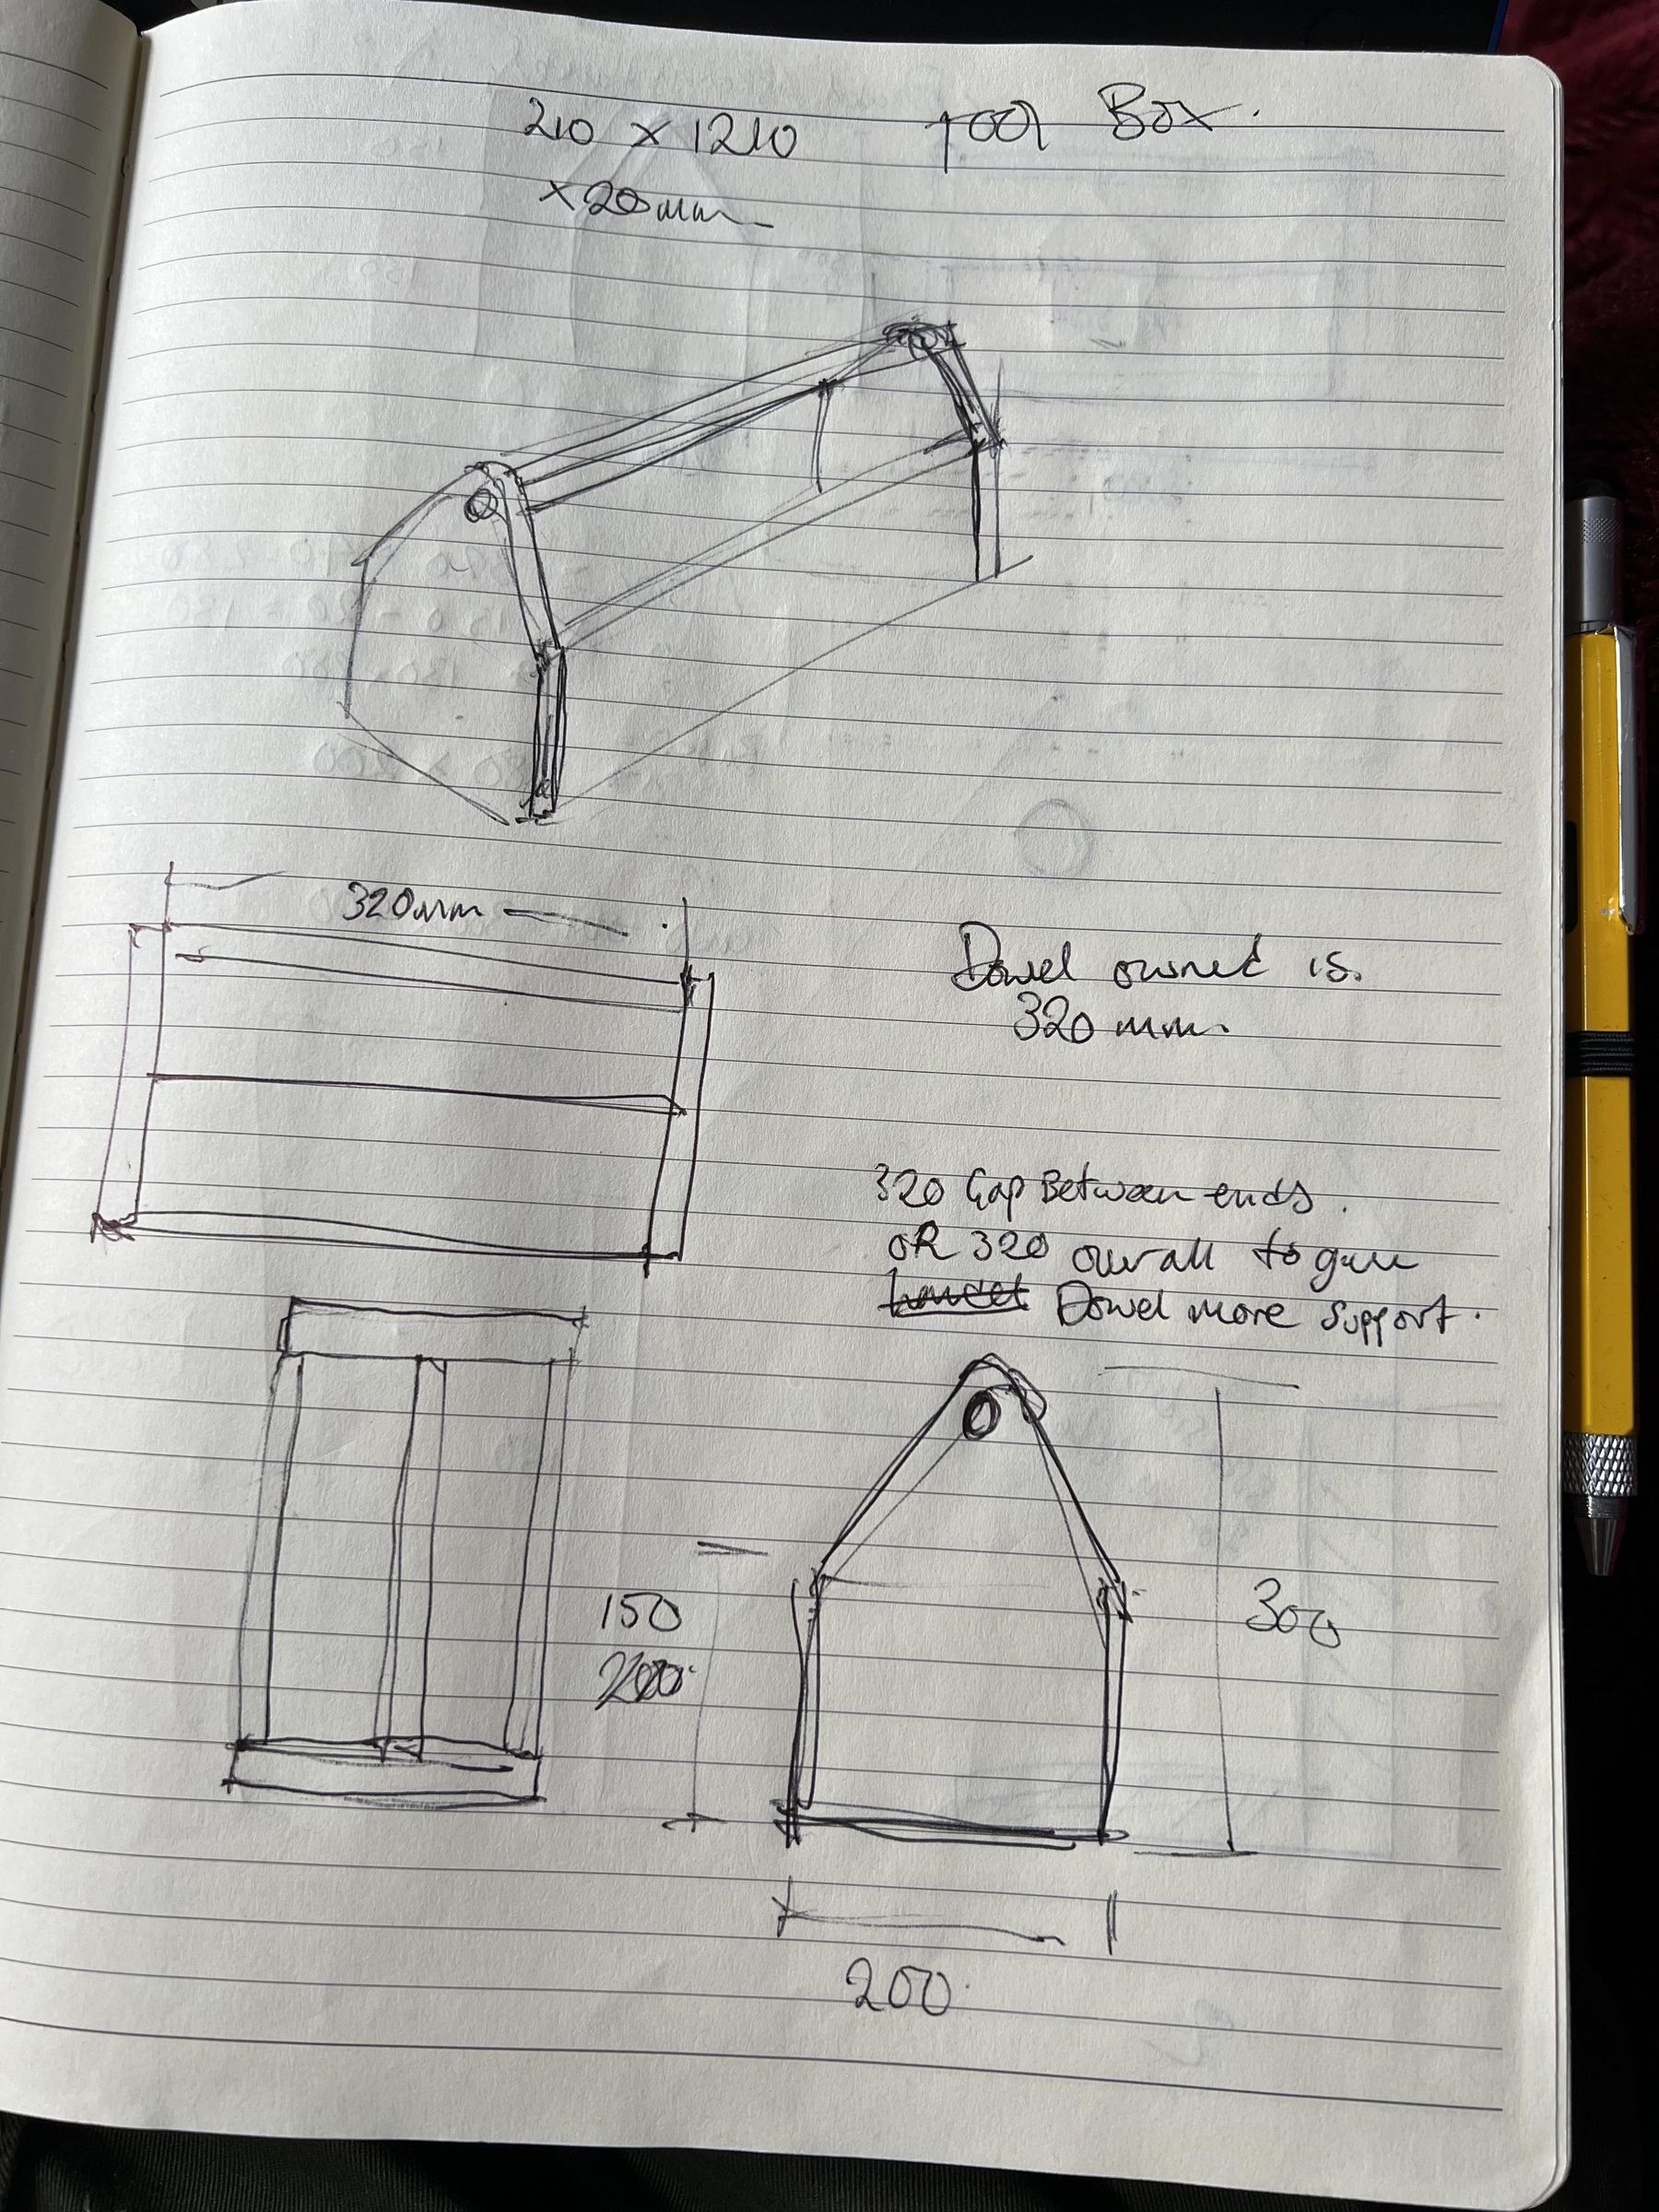 210 x 1210 Tool Box.
x 20mm
320mm
Dowel owned is.
320 mm.
320 Gap Between ends.
OR 320 overall to give
Dowel more support.
150
200
300
200